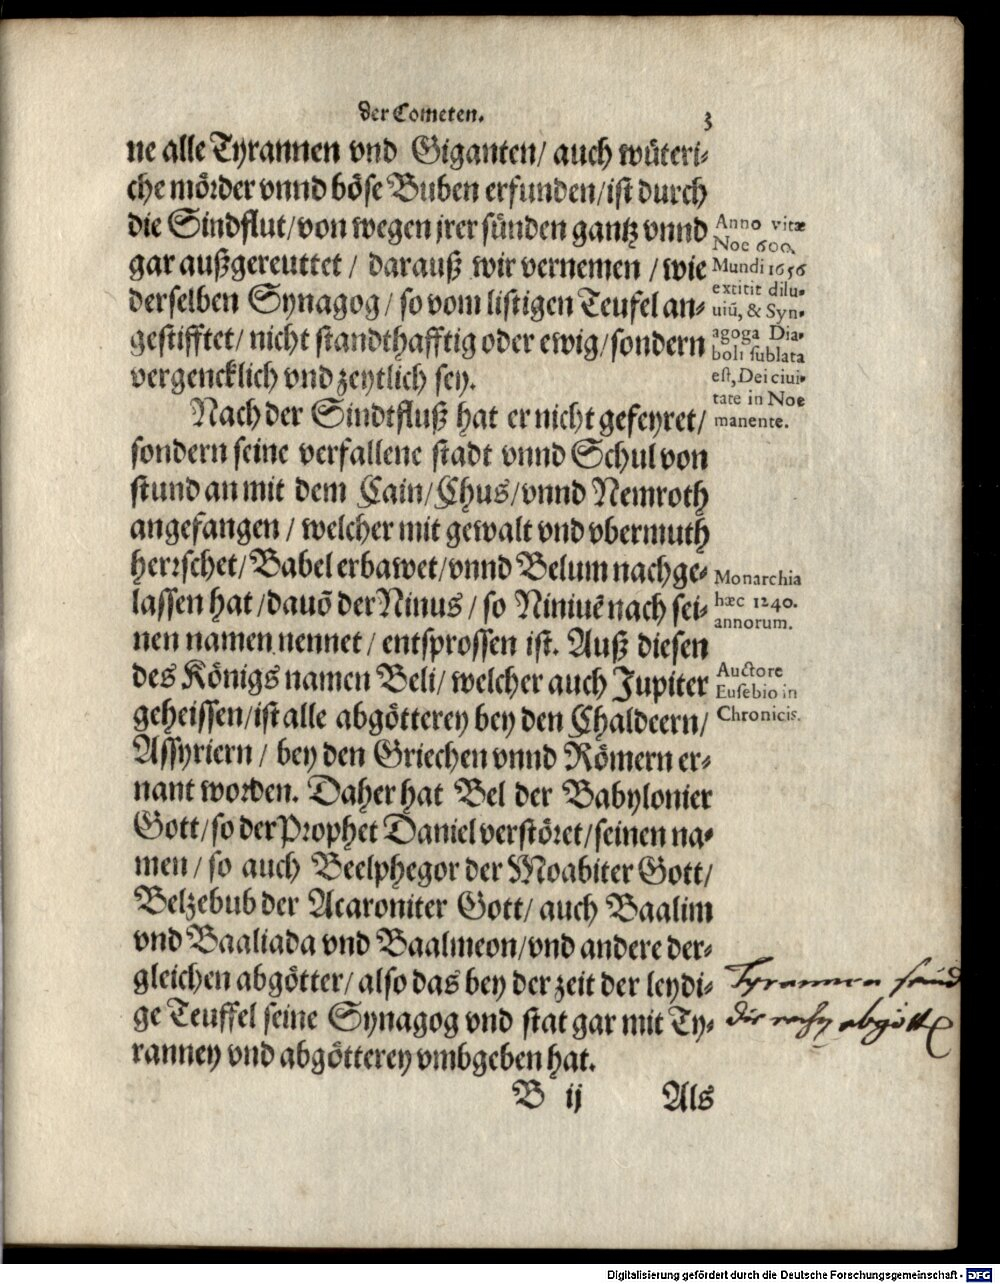 der Cometen. 3
ne alle Tyrannen vnd Giganten/ auch wüteri⸗
che mörder vnnd böse Buben erfunden/ist durch
die Sindflut/von wegen jrer sünden gantz vnnd
gar außgereuttet / darauß wir vernemen / wie
derselben Synagog/ so vom listigen Teufel an⸗
gestifftet/ nicht standthafftig oder ewig/sondern
vergencklich vnd zeytlich sey.
Anno vitæ
Noe 600.
Mundi 1656
extitit dilu-
uiũ, & Syn-
agoga Dia-
boli sublata
est, Dei ciui-
tate in Noe
manente.
Nach der Sindtfluß hat er nicht gefeyret/
sondern seine verfallene stadt vnnd Schul von
stund an mit dem Cain/Chus/vnnd Nemroth
angefangen / welcher mit gewalt vnd vbermuth
herrschet/Babel erbawet/vnnd Belum nachge⸗
lassen hat/dauõ der Ninus / so Niniuẽ nach sei⸗
nen namen nennet/ entsprossen ist. Auß diesen
des Königs namen Beli/ welcher auch Jupiter
geheissen/ist alle abgötterey bey den Chaldeern/
Assyriern / bey den Griechen vnnd Römern er⸗
nant worden. Daher hat Bel der Babylonier
Gott/so der Prophet Daniel verstöret/seinen na⸗
men / so auch Beelphegor der Moabiter Gott/
Belzebub der Acaroniter Gott/ auch Baalim
vnd Baaliada vnd Baalmeon/vnd andere der⸗
gleichen abgötter/ also das bey der zeit der leydi⸗
ge Teuffel seine Synagog vnd stat gar mit Ty⸗
ranney vnd abgötterey vmbgeben hat.
Monarchia
hæc 1240.
annorum.
Auctore
Eusebio in
Chronicis.
Tyrannen seind
die abgött
B ij Als
Digitalisierung gefördert durch die Deutsche Forschungsgemeinschaft - DFG